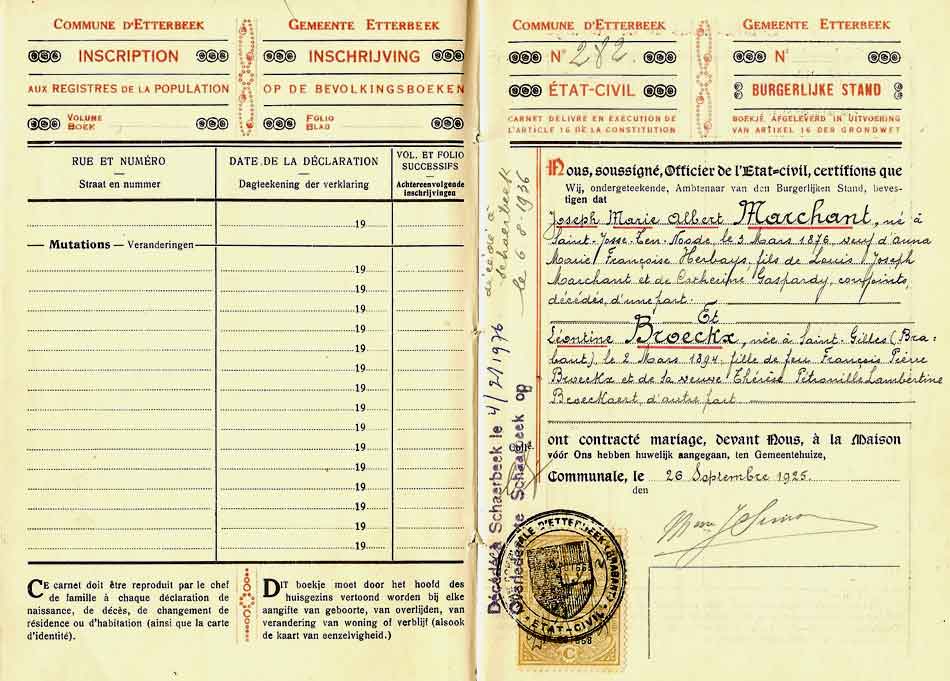 COMMUNE D'ETTERBEEK
INSCRIPTION
AUX REGISTRES DE LA POPULATION
VOLUME
BOEK
GEMEENTE ETTERBEEK
INSCHRIJVING
OP DE BEVOLKINGSBOEKEN
FOLIO
BLAD
RUE ET NUMÉRO
Straat en nummer
DATE DE LA DÉCLARATION
Dagteekening der verklaring
VOL. ET FOLIO
SUCCESSIFS
Achtereenvolgende
inschrijvingen
19
Mutations — Veranderingen
19
19
19
19
19
19
19
19
19
19
19
19
CE carnet doit être reproduit par le chef
de famille à chaque déclaration de
naissance, de décès, de changement de
résidence ou d'habitation (ainsi que la carte
d'identité).
DIT boekje moet door het hoofd des
huisgezins vertoond worden bij elke
aangifte van geboorte, van overlijden, van
verandering van woning of verblijf (alsook
de kaart van eenzelvigheid.)
COMMUNE D'ETTERBEEK
N° 282.
ÉTAT-CIVIL
CARNET DÉLIVRÉ EN EXÉCUTION DE
L'ARTICLE 16 DE LA CONSTITUTION
GEMEENTE ETTERBEEK
N°
BURGERLIJKE STAND
BOEKJE AFGELEVERD IN UITVOERING
VAN ARTIKEL 16 DER GRONDWET
Nous, soussigné, Officier de l'Etat=civil, certifions que
Wij, ondergeteekende, Ambtenaar van den Burgerlijken Stand, beves-
tigen dat
Joseph Marie Albert Marchant, né à
Saint-Josse-ten-Noode, le 3 Mars 1876, veuf d'Anna
Marie Françoise Herbays, fils de Louis Joseph
Marchant et de Catherine Gaspardy, conjoints,
décédés, d'une part.
Et
Léontine Broeckx, née à Saint-Gilles (Bra-
bant), le 2 Mars 1894, fille de feu François Pierre
Broeckx et de sa veuve Thérèse Pétronille Lambertine
Broeckaert, d'autre part
ont contracté mariage, devant Nous, à la Maison
vóór Ons hebben huwelijk aangegaan, ten Gemeentehuize,
Communale, le 26 Septembre 1925.
den
décédé à
Schaerbeek
le 6-8-1936
Décédée à Schaerbeek le 4/2/1976
Overleden te Schaarbeek op
ETAT-CIVIL
C